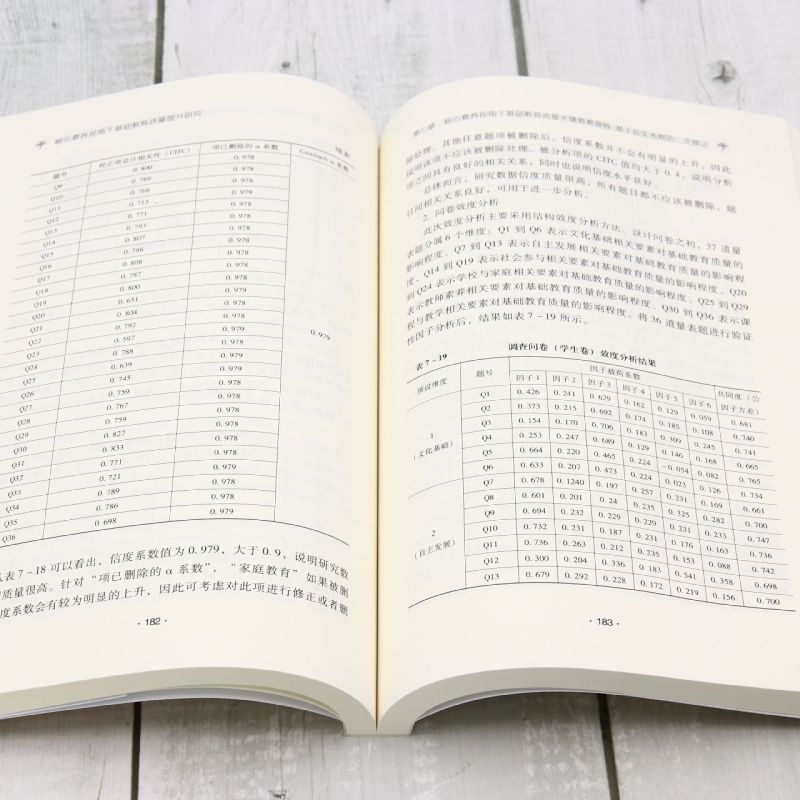 核心素养视角下基础教育质量提升研究
续表
题号 校正项总计相关性 (CITC) 项已删除的 α 系数 Cronbach α 系数
Q9 0.800 0.978
Q10 0.769 0.978
Q11 0.768 0.978
Q12 0.713 0.978
Q13 0.771 0.978
Q14 0.793 0.978
Q15 0.802 0.978
Q16 0.786 0.978
Q17 0.808 0.978
Q18 0.787 0.978
Q19 0.800 0.978
Q20 0.651 0.979
Q21 0.804 0.978
Q22 0.792 0.978
Q23 0.597 0.979 0.979
Q24 0.788 0.978
Q25 0.639 0.979
Q26 0.745 0.978
Q27 0.759 0.978
Q28 0.767 0.978
Q29 0.759 0.978
Q30 0.827 0.978
Q31 0.833 0.978
Q32 0.771 0.978
Q33 0.721 0.979
Q34 0.789 0.978
Q35 0.786 0.978
Q36 0.698 0.979
从表 7-18 可以看出，信度系数值为 0.979，大于 0.9，说明研究数
质量很高。针对“项已删除的 α 系数”，“家庭教育”如果被删
度系数会有较为明显的上升，因此可考虑对此项进行修正或者删
· 182 ·
第七章 核心素养视角下基础教育质量关键要素提炼:基于现实考察的二次修正
除处理。其他任意题项被删除后，信度系数并不会有明显的上升，因此
说明该项不应该被删除处理。被分析项的 CITC 值均大于 0.4，说明分析
项之间具有良好的相关关系，同时也说明信度水平良好。
总体而言，研究数据信度质量很高，所有题目都不应该被删除，题
目间相关关系良好，可用于进一步分析。
2. 问卷效度分析
此次效度分析主要采用结构效度分析方法。设计问卷之初，37 道量
表题分属 6 个维度：Q1 到 Q6 表示文化基础相关要素对基础教育质量的
影响程度、Q7 到 Q13 表示自主发展相关要素对基础教育质量的影响程
度、Q14 到 Q19 表示社会参与相关要素对基础教育质量的影响程度、Q20
到 Q24 表示学校与家庭相关要素对基础教育质量的影响程度、Q25 到 Q29
表示教师素养相关要素对基础教育质量的影响程度、Q30 到 Q36 表示课
程与教学相关要素对基础教育质量的影响程度。将 36 道量表题进行验证
性因子分析后，结果如表 7-19 所示。
表 7-19 调查问卷（学生卷）效度分析结果
预设维度 题号 因子载荷系数 共同度（公
因子 1 因子 2 因子 3 因子 4 因子 5 因子 6 因子方差）
Q1 0.426 0.241 0.629 0.162 0.129 0.059 0.681
Q2 0.373 0.215 0.692 0.174 0.185 0.108 0.740
1 Q3 0.154 0.170 0.706 0.183 0.309 0.245 0.741
（文化基础） Q4 0.253 0.247 0.689 0.129 0.146 0.168 0.665
Q5 0.664 0.220 0.465 0.224 -0.054 0.082 0.765
Q6 0.633 0.207 0.473 0.224 0.023 0.126 0.734
Q7 0.678 0.1240 0.197 0.257 0.231 0.169 0.661
Q8 0.601 0.201 0.24 0.235 0.325 0.282 0.700
2 Q9 0.694 0.232 0.229 0.231 0.176 0.163 0.747
（自主发展） Q10 0.732 0.231 0.187 0.235 0.153 0.088 0.736
Q11 0.736 0.263 0.212 0.183 0.541 0.358 0.742
Q12 0.300 0.204 0.336 0.172 0.219 0.156 0.698
Q13 0.679 0.292 0.228 0.700
· 183 ·